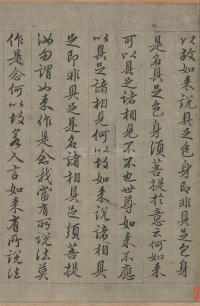 以故如来說具足色身即非具足色身
是名具足色身須菩提於意云何如来
可以具足諸相見不不也世尊如来不應
以具足諸相見何以故如来說諸相具
足即非具足是名諸相具足須菩提
汝勿謂如来作是念我當有所說法莫
作是念何以故若人言如来有所說法